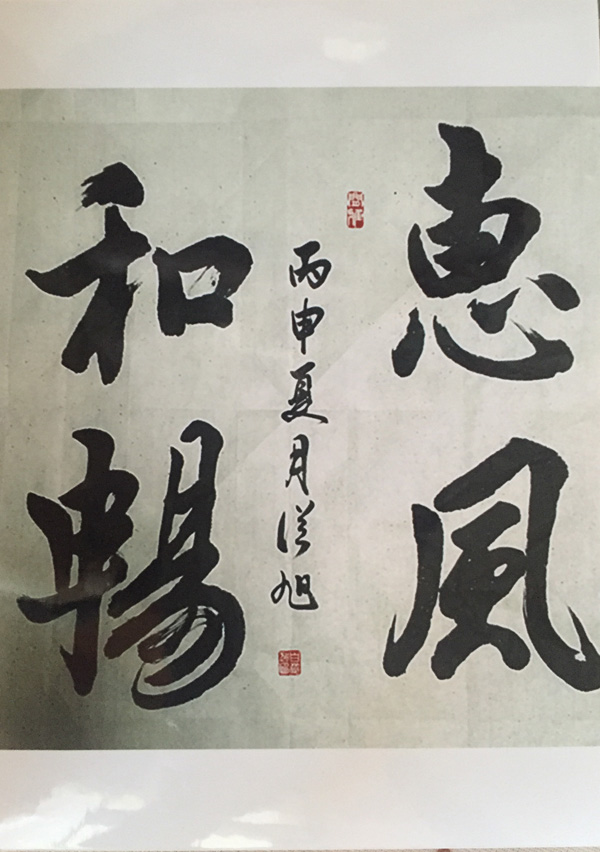 惠風
和暢
丙申夏月從旭